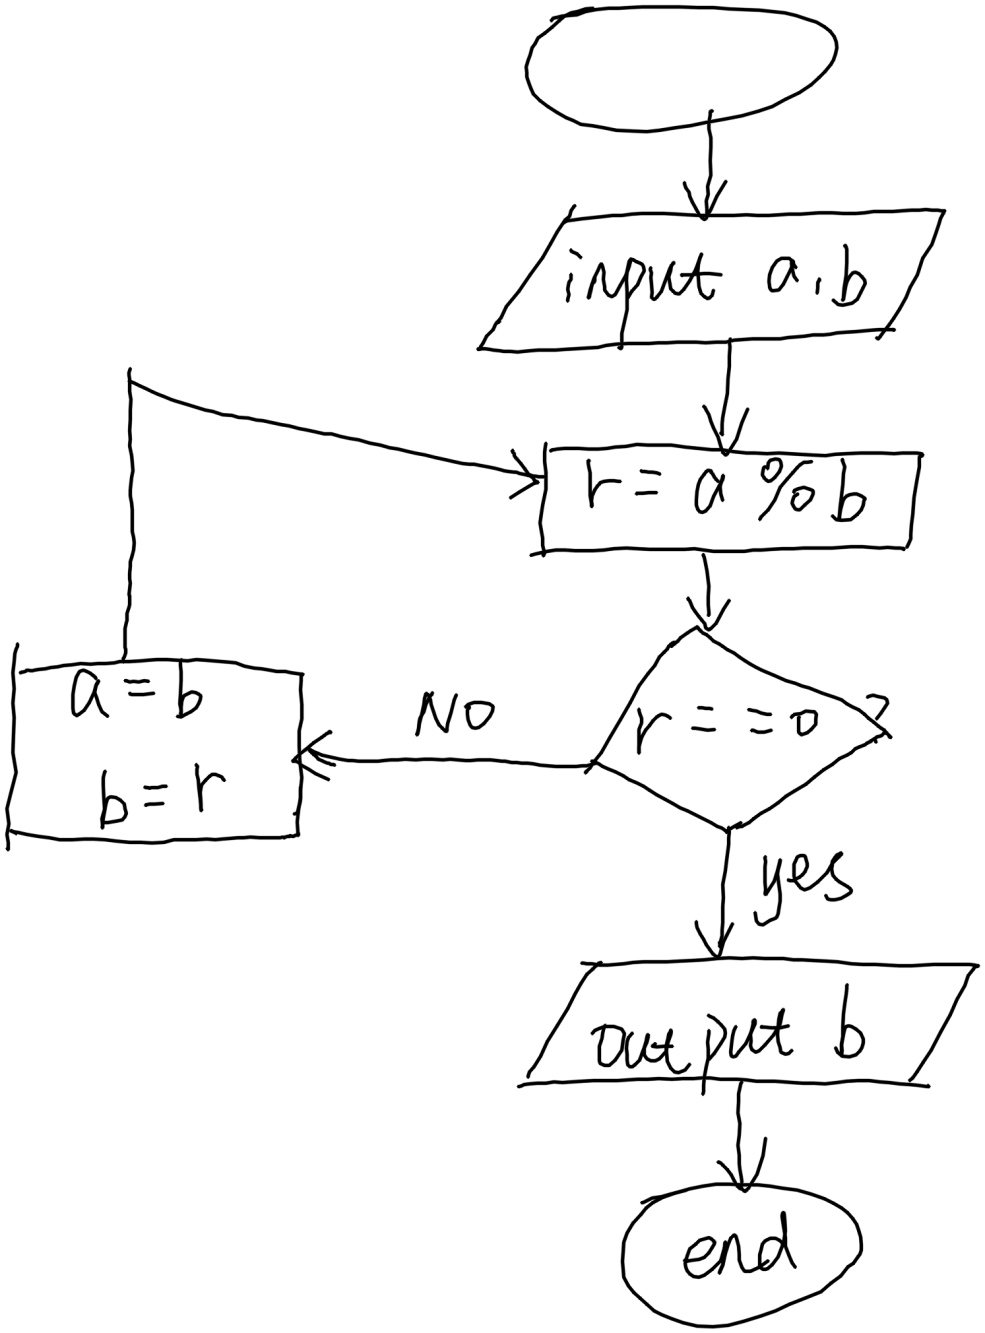 input a.b
r = a % b
r = = 0 ?
NO
a = b
b = r
yes
output b
end